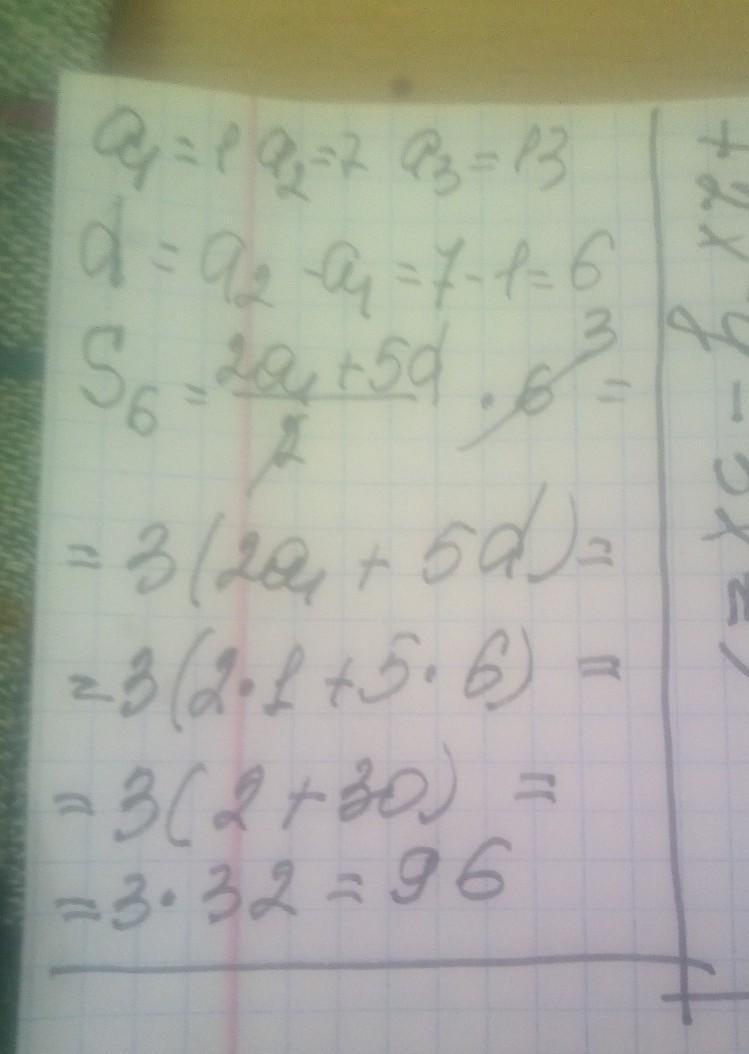 a₁ = 1 a₂ = 7 a₃ = 13
d = a₂ - a₁ = 7 - 1 = 6
S₆ = (2a₁ + 5d)/2 · 6 3 =
= 3(2a₁ + 5d) =
= 3(2·1 + 5·6) =
= 3(2 + 30) =
= 3·32 = 96